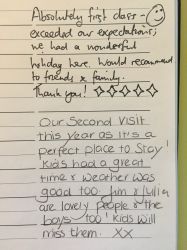 Absolutely first class -
exceeded our expectations;
we had a wonderful
holiday here. Would recommend
to friends & family.
Thank you!
Our Second Visit
this year as it's a
perfect place to stay
kids had a great
time & weather was
good too. Jim & Julia
are lovely people & the
boys too! kids will
miss them. XX